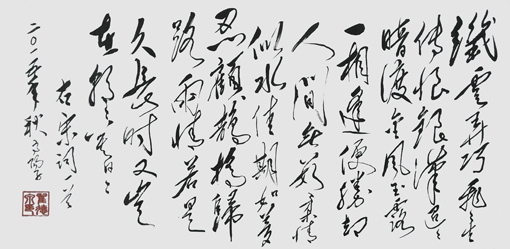 纖雲弄巧飛星
傳恨銀漢迢〻
暗渡金風玉露
一相逢便勝却
人間無數柔情
似水佳期如夢
忍顧鵲橋歸
路兩情若是
久長時又豈
在朝〻暮〻
右宋詞一首
二〇一年秋